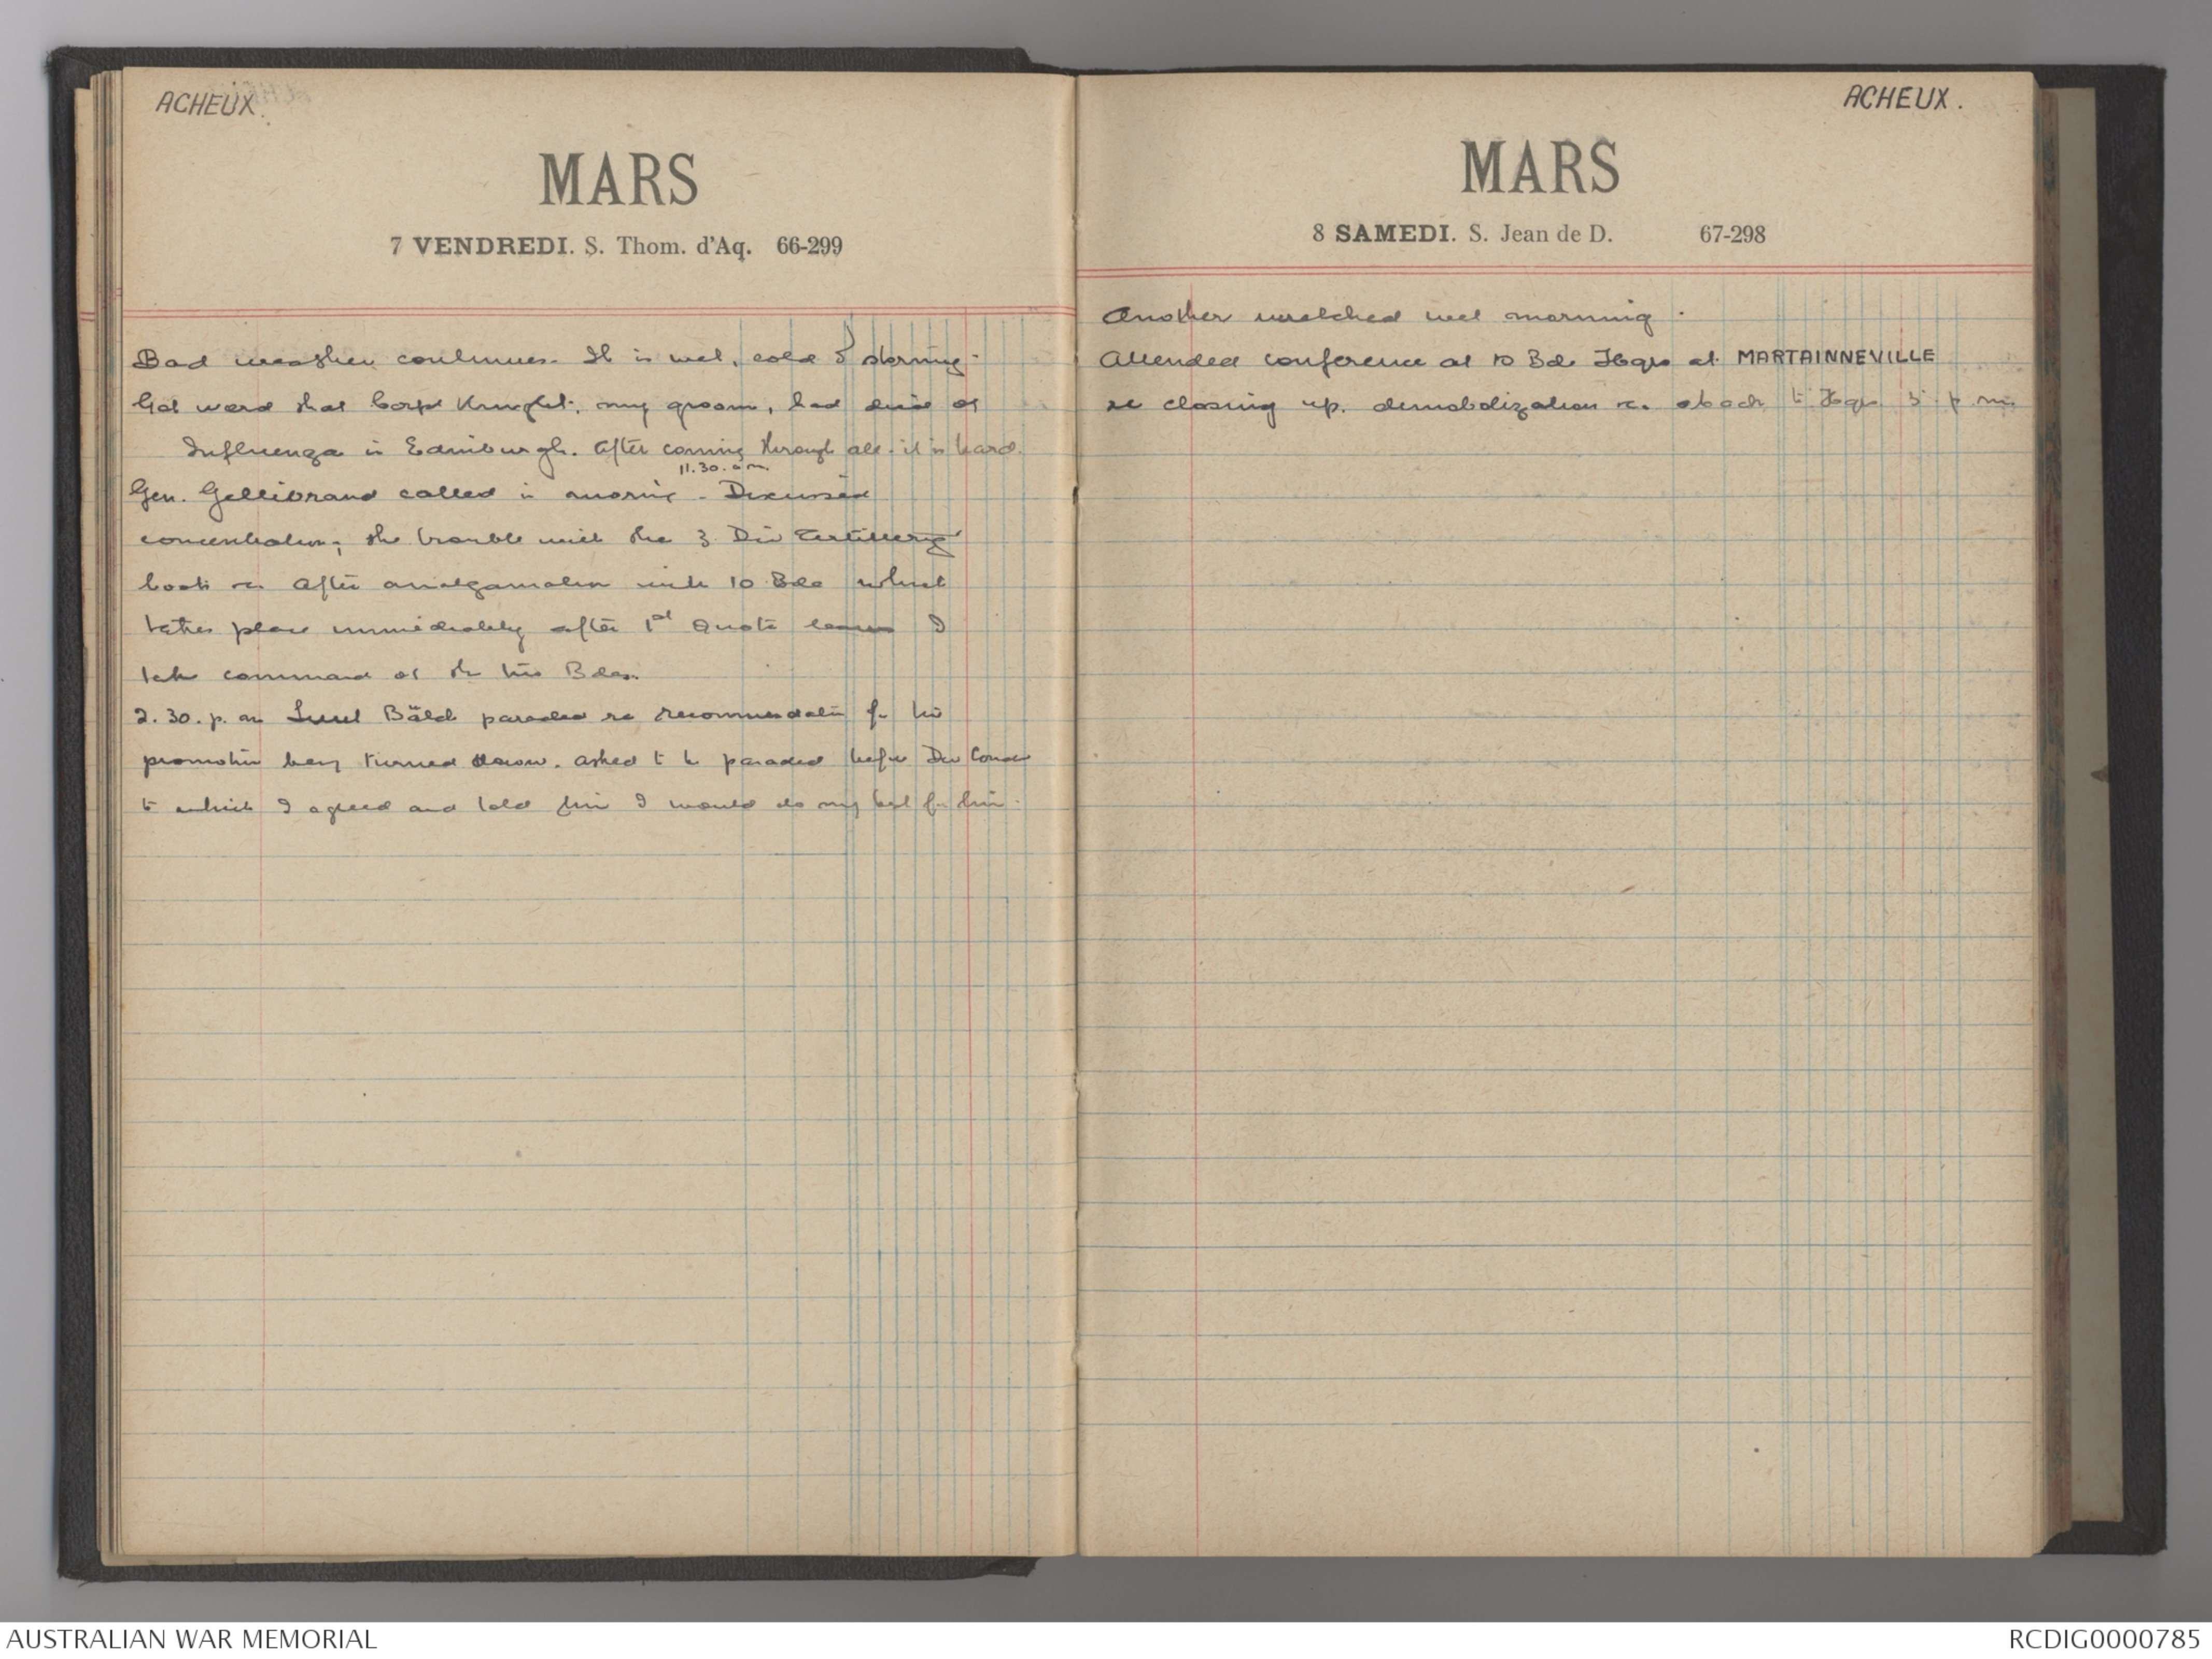 ACHEUX.
MARS
7 VENDREDI. S. Thom. d'Aq. 66-299
Bad weather continues. It is wet, cold & storming.
Got word that Corpl Knight, my groom, had died of
Influenza in Edinburgh. After coming through all it is hard.
11.30. a m.
Gen. Gellibrand called in morning - Discussed
concentration, the trouble with the 3 Div Artillery
boots &c. After amalgamation with 10 Bde which
takes place immediately after 1st Quota leaves I
take command of the two Bdes.
2.30. p. m Lieut Bald paraded re recommendation for his
promotion being turned down. Asked to be paraded before Div Comdr
to which I agreed and told him I would do my best for him.
ACHEUX.
MARS
8 SAMEDI. S. Jean de D. 67-298
Another wretched wet morning.
Attended conference at 10 Bde Hqrs at MARTAINNEVILLE
re closing up. demobolization &c. back to Hqrs 5 p m
AUSTRALIAN WAR MEMORIAL
RCDIG0000785